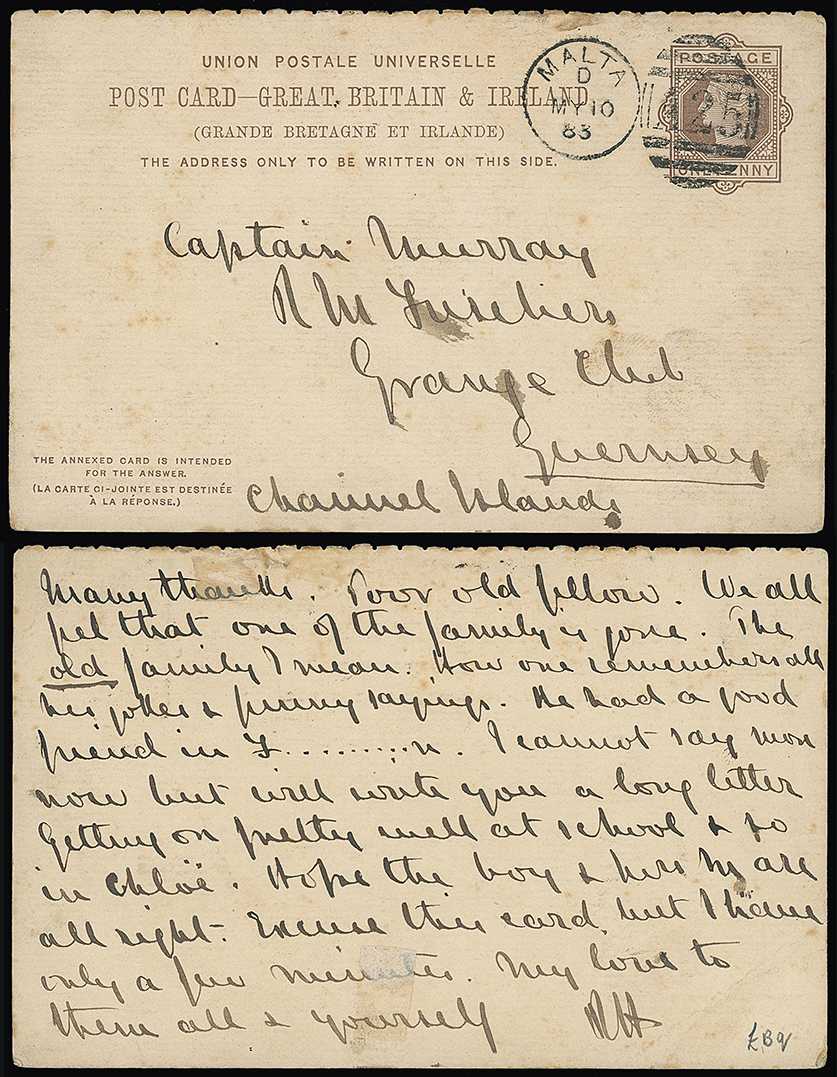 UNION POSTALE UNIVERSELLE
POST CARD—GREAT BRITAIN & IRELAND
(GRANDE BRETAGNE ET IRLANDE)
THE ADDRESS ONLY TO BE WRITTEN ON THIS SIDE.
MALTA
D
MY 10
83
A25
POSTAGE
ONE PENNY
Captain Murray
R M Fusiliers
Grange Club
Guernsey
Channel Islands
THE ANNEXED CARD IS INTENDED
FOR THE ANSWER.
(LA CARTE CI-JOINTE EST DESTINÉE
À LA RÉPONSE.)
Many thanks. Poor old fellow. We all
feel that one of the family is gone. The
old family I mean. How one remembers all
his jokes & funny sayings. He had a good
friend in F.........n. I cannot say more
now but will write you a long letter
Getting on pretty well at school & so
is Chloë. Hope the boy & are
all right. Excuse this card, but I have
only a few minutes. My love to
them all & yourself RH
£Bq